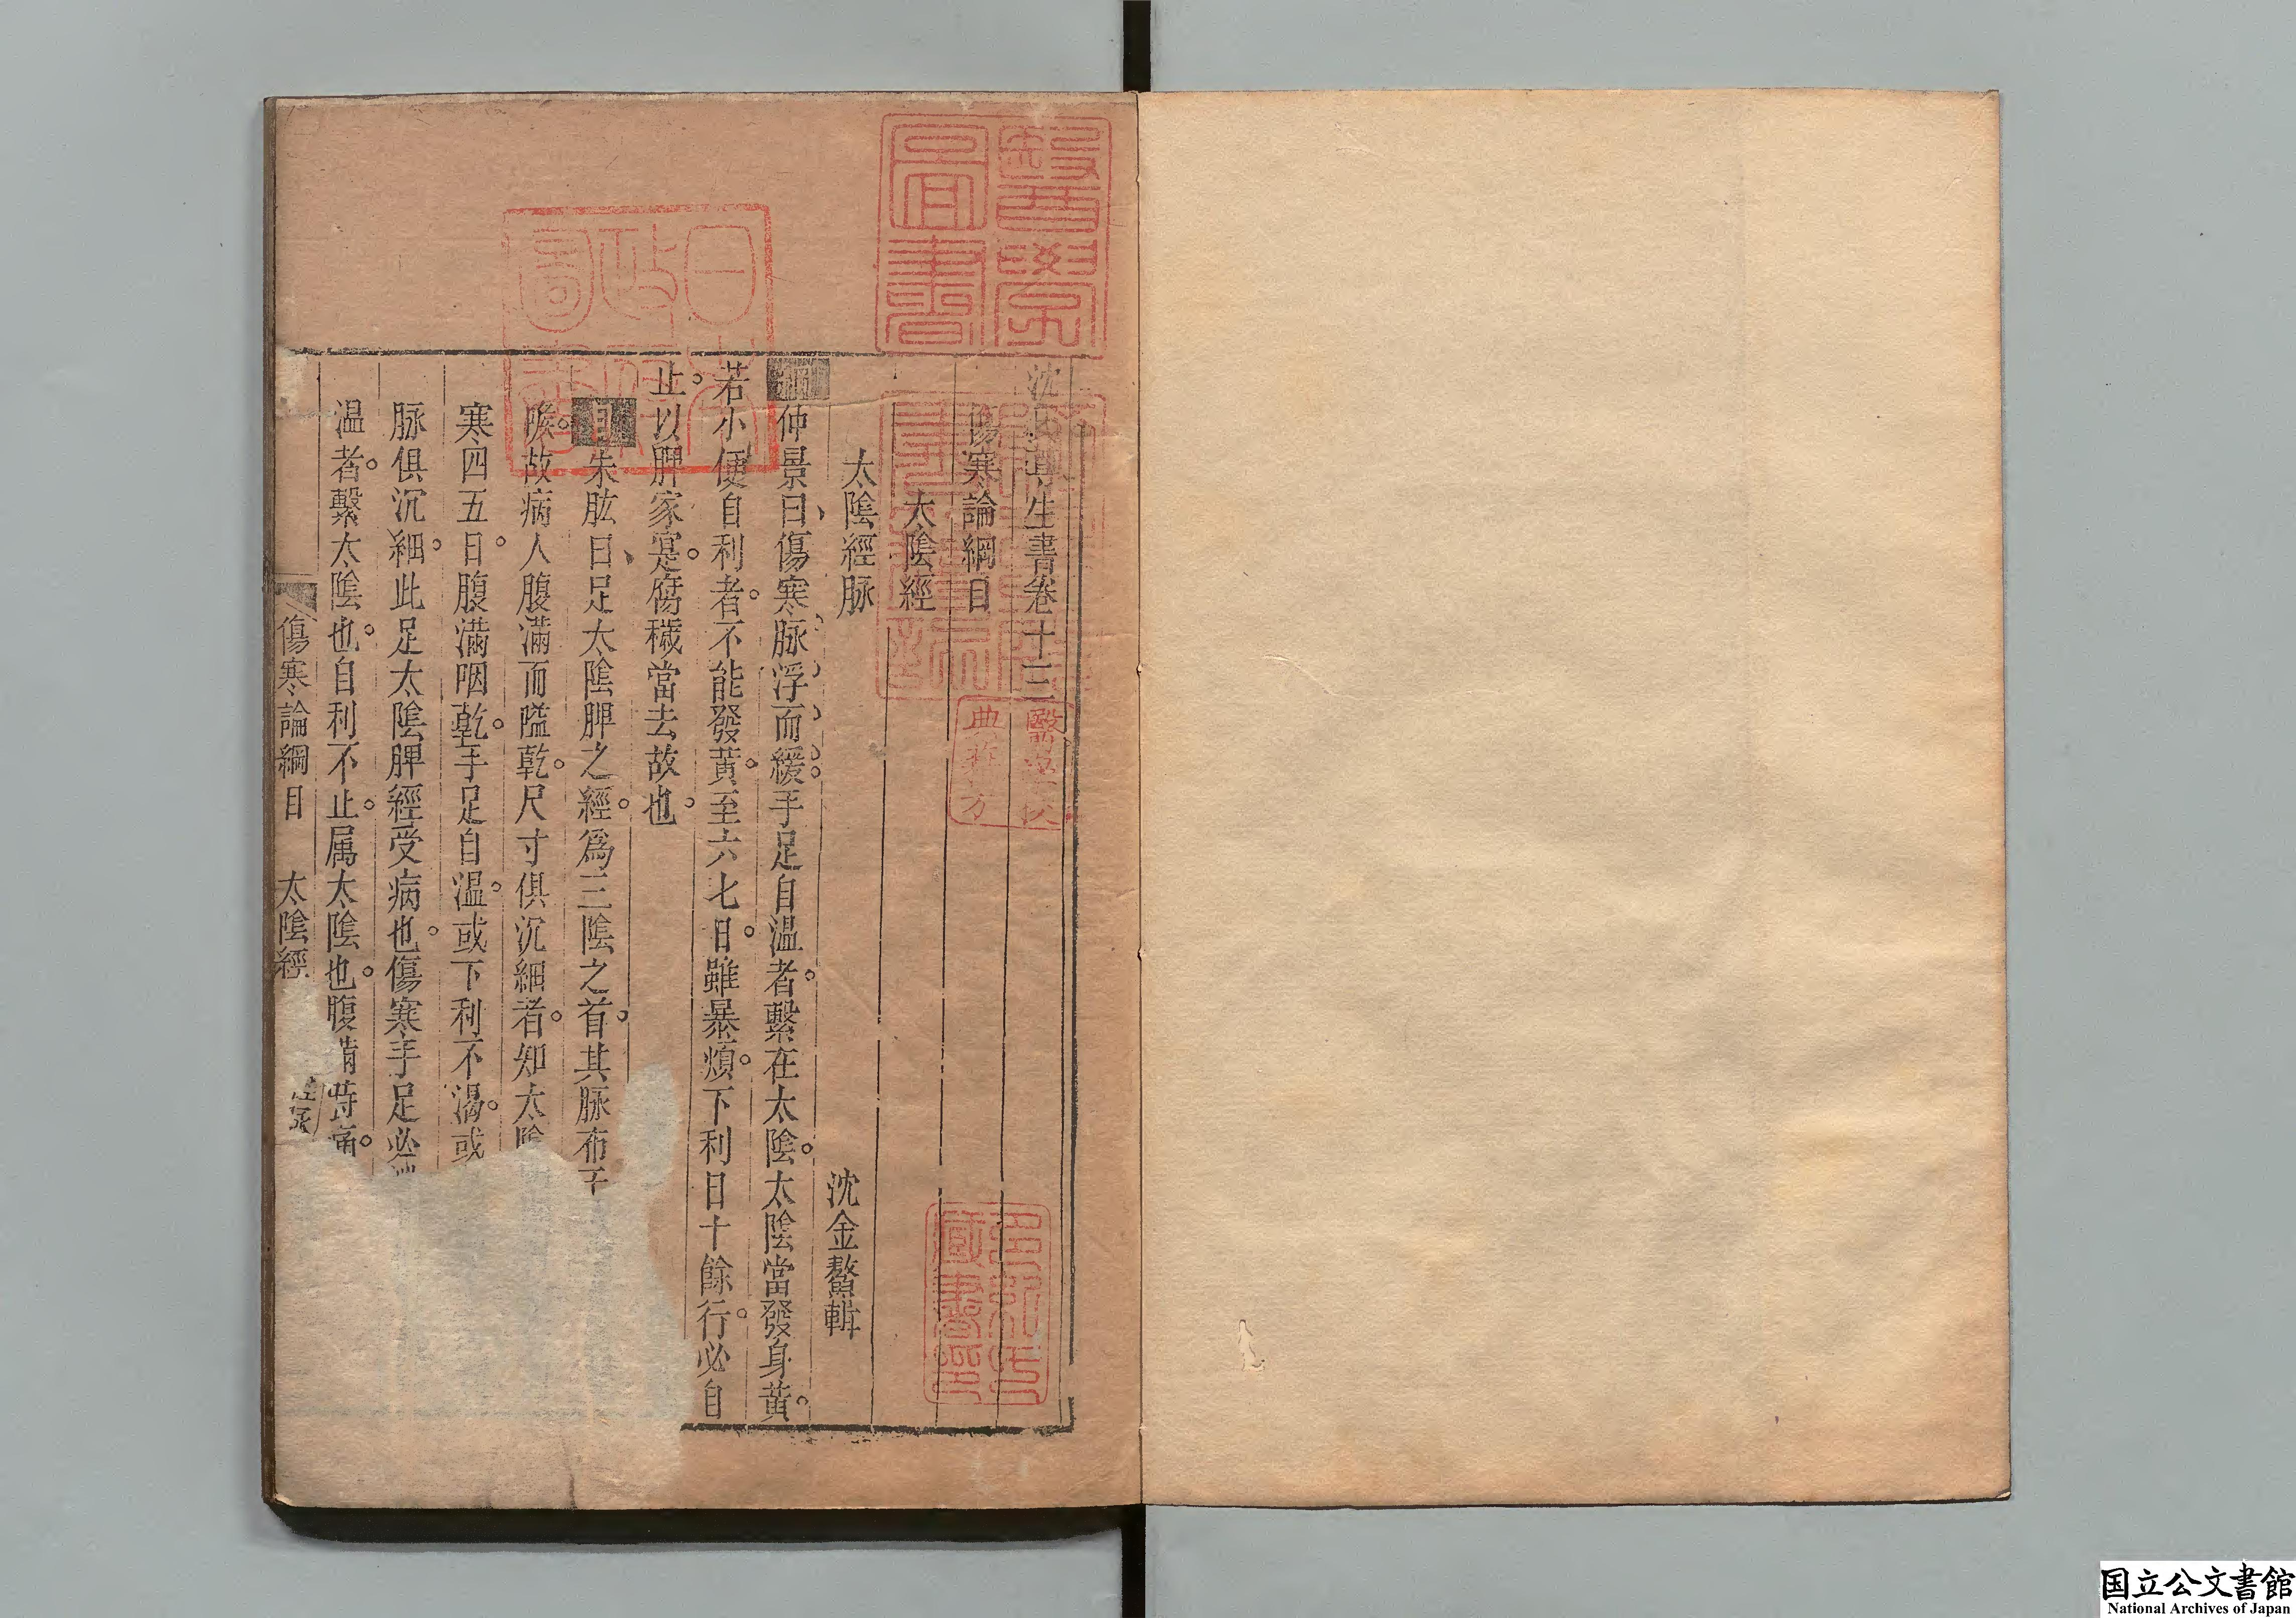 沈氏尊生書卷十三
傷寒論綱目
太陰經
沈金鰲輯
太陰經脉
綱仲景曰傷寒脉浮而緩手足自温者繫在太陰太陰當發身黃
若小便自利者不能發黃至六七日雖暴煩下利日十餘行必自
止以脾家寔腐穢當去故也
目朱肱曰足太陰脾之經爲三陰之首其脉布
喉故病人腹滿而嗌乾尺寸俱沉細者知太陰
寒四五日腹滿咽乾手足自温或下利不渴或
脉俱沉細此足太陰脾經受病也傷寒手足必
温者繫太陰也自利不止属太陰也腹滿時痛
傷寒論綱目 太陰經
醫學圖書
日本政府圖書
國立公文書館
National Archives of Japan